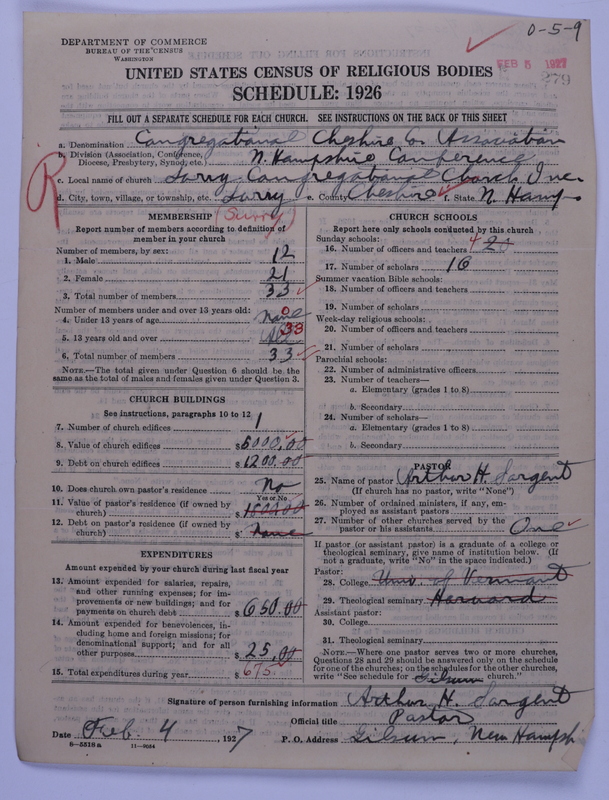 0-5-9
DEPARTMENT OF COMMERCE
BUREAU OF THE CENSUS
WASHINGTON
FEB 5 1927
279
UNITED STATES CENSUS OF RELIGIOUS BODIES
SCHEDULE: 1926
FILL OUT A SEPARATE SCHEDULE FOR EACH CHURCH. SEE INSTRUCTIONS ON THE BACK OF THIS SHEET
a. Denomination Congregational Cheshire Co. Association
b. Division (Association, Conference, Diocese, Presbytery, Synod, etc.) N. Hampshire Conference
c. Local name of church Surry Congregational Church Inc.
d. City, town, village, or township, etc. Surry e. County Cheshire f. State N. Hamp.
R
(Surry)
MEMBERSHIP
Report number of members according to definition of
member in your church
Number of members, by sex:
1. Male 12
2. Female 21
3. Total number of members 33
Number of members under and over 13 years old:
4. Under 13 years of age None 0
5. 13 years old and over All 33
6. Total number of members 33
NOTE.—The total given under Question 6 should be the
same as the total of males and females given under Question 3.
CHURCH BUILDINGS
See instructions, paragraphs 10 to 12
7. Number of church edifices 1
8. Value of church edifices $6000.00
9. Debt on church edifices $1200.00
10. Does church own pastor's residence No
Yes or No
11. Value of pastor's residence (if owned by
church) $
12. Debt on pastor's residence (if owned by
church) $ None
EXPENDITURES
Amount expended by your church during last fiscal year
13. Amount expended for salaries, repairs,
and other running expenses; for im-
provements or new buildings; and for
payments on church debt $650.00
14. Amount expended for benevolences, in-
cluding home and foreign missions; for
denominational support; and for all
other purposes $25.00
15. Total expenditures during year $675.
CHURCH SCHOOLS
Report here only schools conducted by this church
Sunday schools:
16. Number of officers and teachers 4
17. Number of scholars 16
Summer vacation Bible schools:
18. Number of officers and teachers
19. Number of scholars
Week-day religious schools:
20. Number of officers and teachers
21. Number of scholars
Parochial schools:
22. Number of administrative officers
23. Number of teachers—
a. Elementary (grades 1 to 8)
b. Secondary
24. Number of scholars—
a. Elementary (grades 1 to 8)
b. Secondary
PASTOR
25. Name of pastor Arthur H. Sargent
(If church has no pastor, write "None")
26. Number of ordained ministers, if any, em-
ployed as assistant pastor
27. Number of other churches served by the
pastor or his assistants One
If pastor (or assistant pastor) is a graduate of a college or
theological seminary, give name of institution below. (If
not a graduate, write "No" in the space indicated.)
Pastor:
28. College Univ. of Vermont
29. Theological seminary Harvard
Assistant pastor:
30. College
31. Theological seminary
NOTE.—Where one pastor serves two or more churches,
Questions 28 and 29 should be answered only on the schedule
for one of the churches; on the schedules for the other churches,
write "See schedule for Gilsum church."
Signature of person furnishing information Arthur H. Sargent
Official title Pastor
Date Feb. 4, 1927 P. O. Address Gilsum, New Hampshi
8-5518a 11-9054